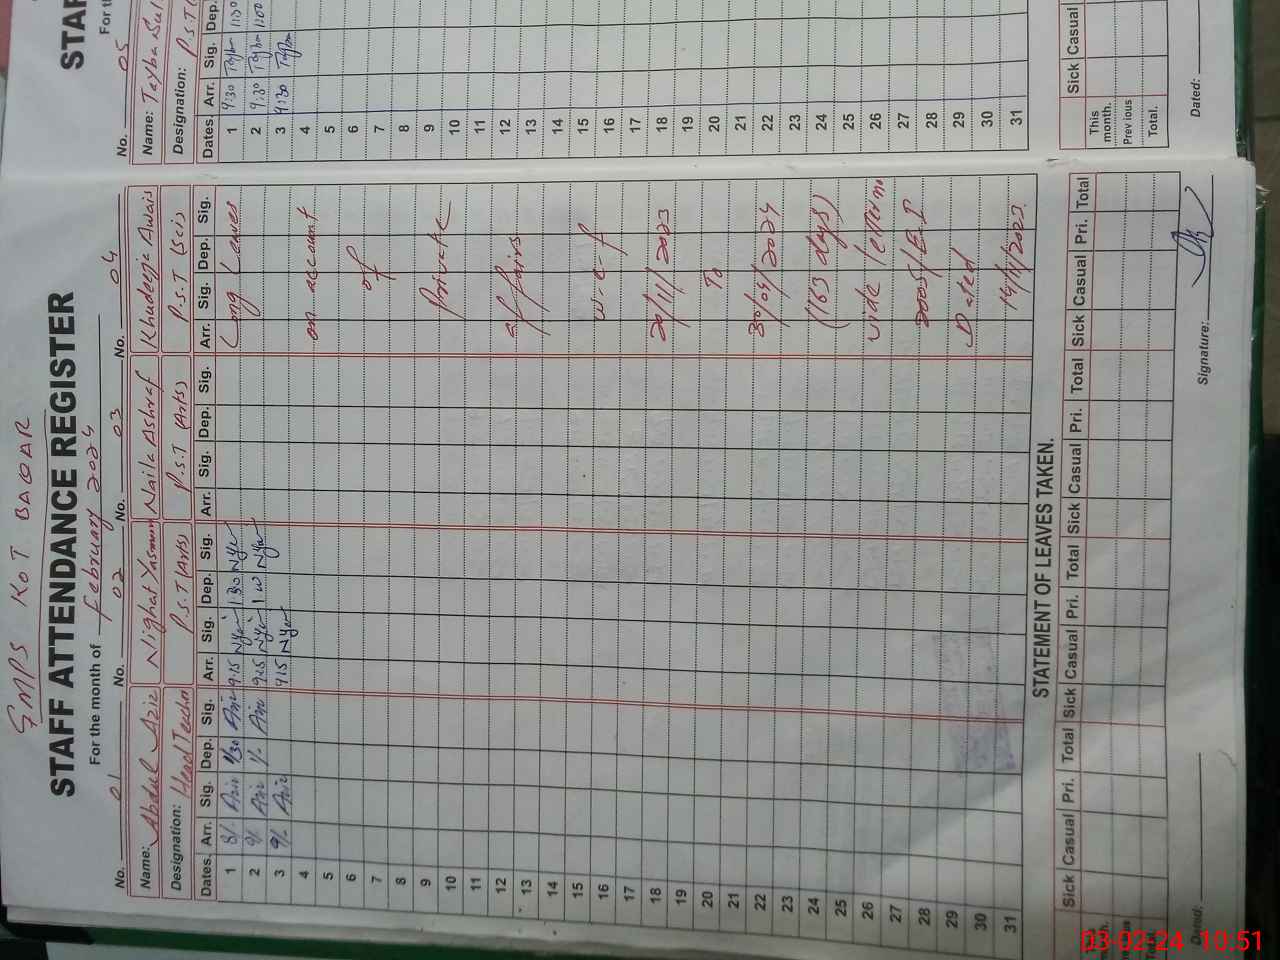 GMPS KOT BAQAR
STAFF ATTENDANCE REGISTER
For the month of February 2024
No. 01 No. 02 No. 03 No. 04
Name: Abdul Aziz Nighat Yasmin Naila Ashraf Khudeeja Awais
Designation: Head Teacher P.S.T (Arts) P.S.T (Arts) P.S.T (Scis
Dates. Arr. Sig. Dep. Sig. Arr. Sig. Dep. Sig. Arr. Sig. Dep. Sig. Arr. Sig. Dep. Sig.
1 8/. Aziz 1/30 Aziz 9:15 1:30 Long Leaves
2 9/. Aziz 1/. Aziz 9:25 1:00
3 9/. Aziz 9:15
4 on account
5
6 of
7
8
9 Private
10
11
12 affairs
13
14
15
16 w.e.f
17
18 20/11/2023
19
20 To
21
22 30/04/2024
23
24 (163 days)
25
26 vide letter no
27
28 2005/E.I
29 Dated
30
31 14/11/2023.
STATEMENT OF LEAVES TAKEN.
Sick Casual Pri. Total Sick Casual Pri. Total Sick Casual Pri. Total Sick Casual Pri. Total
Dated: Signature:
STAF
For th
No. 05
Name: Tayba Sul
Designation: P.S.T (
Dates. Arr. Sig. Dep.
1 9:30 Tayba 1:30
2 9:30 Tayba 1:00
3 9:30 Tayba
4
5
6
7
8
9
10
11
12
13
14
15
16
17
18
19
20
21
22
23
24
25
26
27
28
29
30
31
Sick Casual
This month.
Previous
Total.
Dated:
03-02-24 10:51